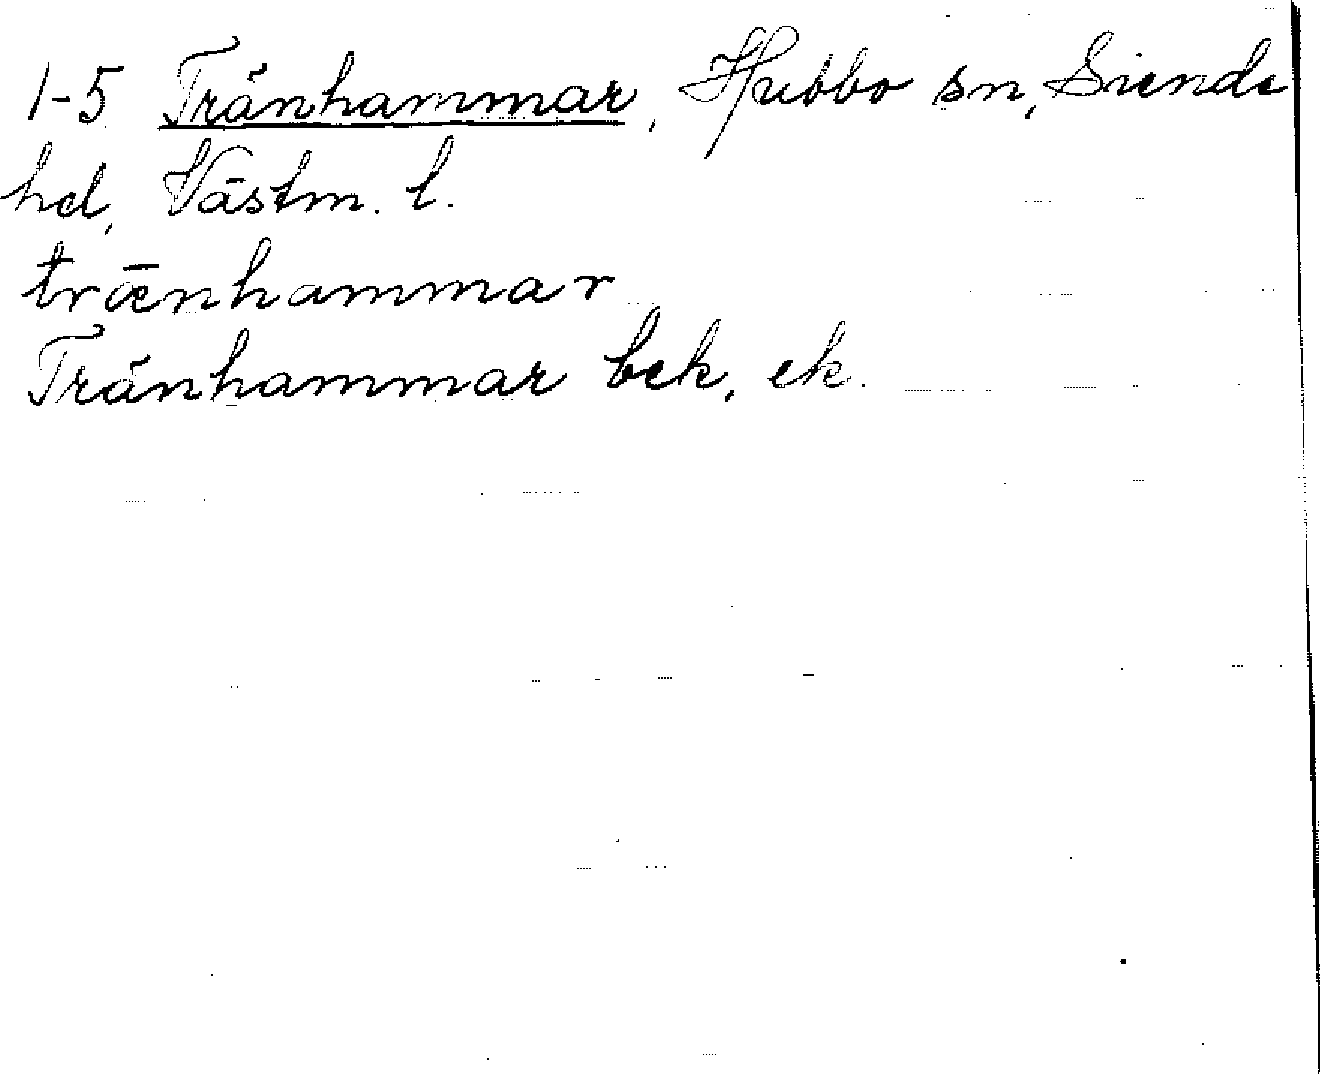 1-5 Tränhammar, Hubbo sn, Siende
hd, Västm. l.
trǣnhammar
Tränhammar bek, ek.